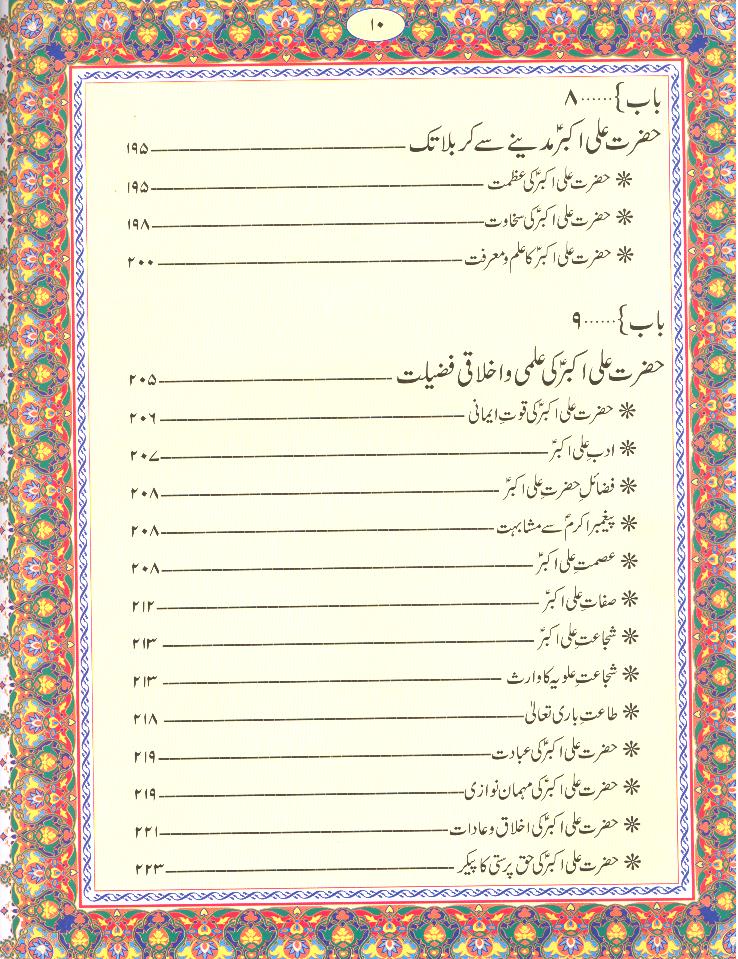 ۱۰
باب}......۸
حضرت علی اکبرؑ مدینے سے کربلا تک ۱۹۵
❋ حضرت علی اکبرؑ کی عظمت ۱۹۵
❋ حضرت علی اکبرؑ کی سخاوت ۱۹۸
❋ حضرت علی اکبرؑ کا علم و معرفت ۲۰۰
باب}......۹
حضرت علی اکبرؑ کی علمی و اخلاقی فضیلت ۲۰۵
❋ حضرت علی اکبرؑ کی قوتِ ایمانی ۲۰۶
❋ ادبِ علی اکبرؑ ۲۰۷
❋ فضائلِ حضرتِ علی اکبرؑ ۲۰۸
❋ پیغمبر اکرمؐ سے مشابہت ۲۰۸
❋ عصمتِ علی اکبرؑ ۲۰۸
❋ صفاتِ علی اکبرؑ ۲۱۲
❋ شجاعتِ علی اکبرؑ ۲۱۳
❋ شجاعتِ علویہ کا وارث ۲۱۳
❋ طاعتِ باری تعالیٰ ۲۱۸
❋ حضرت علی اکبرؑ کی عبادت ۲۱۹
❋ حضرت علی اکبرؑ کی مہمان نوازی ۲۱۹
❋ حضرت علی اکبرؑ کی اخلاق و عادات ۲۲۱
❋ حضرت علی اکبرؑ کی حق پرستی کا پیکر ۲۲۳